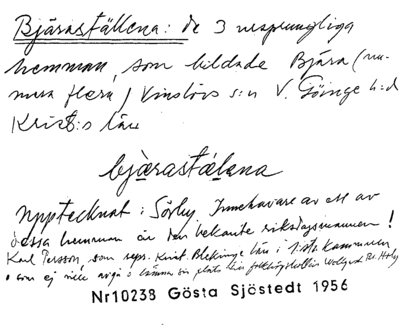 Bjäraställena: de 3 ursprungliga
hemman, som bildade Bjära (nu-
mera flera) Vinslövs s:n V. Göinge h:d
Krist:s län
bjärastälena
upptecknat i Sörby. Innehavare av ett av
dessa hemman är den bekante riksdagsmannen!
Karl Persson, som repr. Krist. Blekinge län i 1:sta kammaren
o som ej ville avgå o lämna sin plats
Nr10238 Gösta Sjöstedt 1956